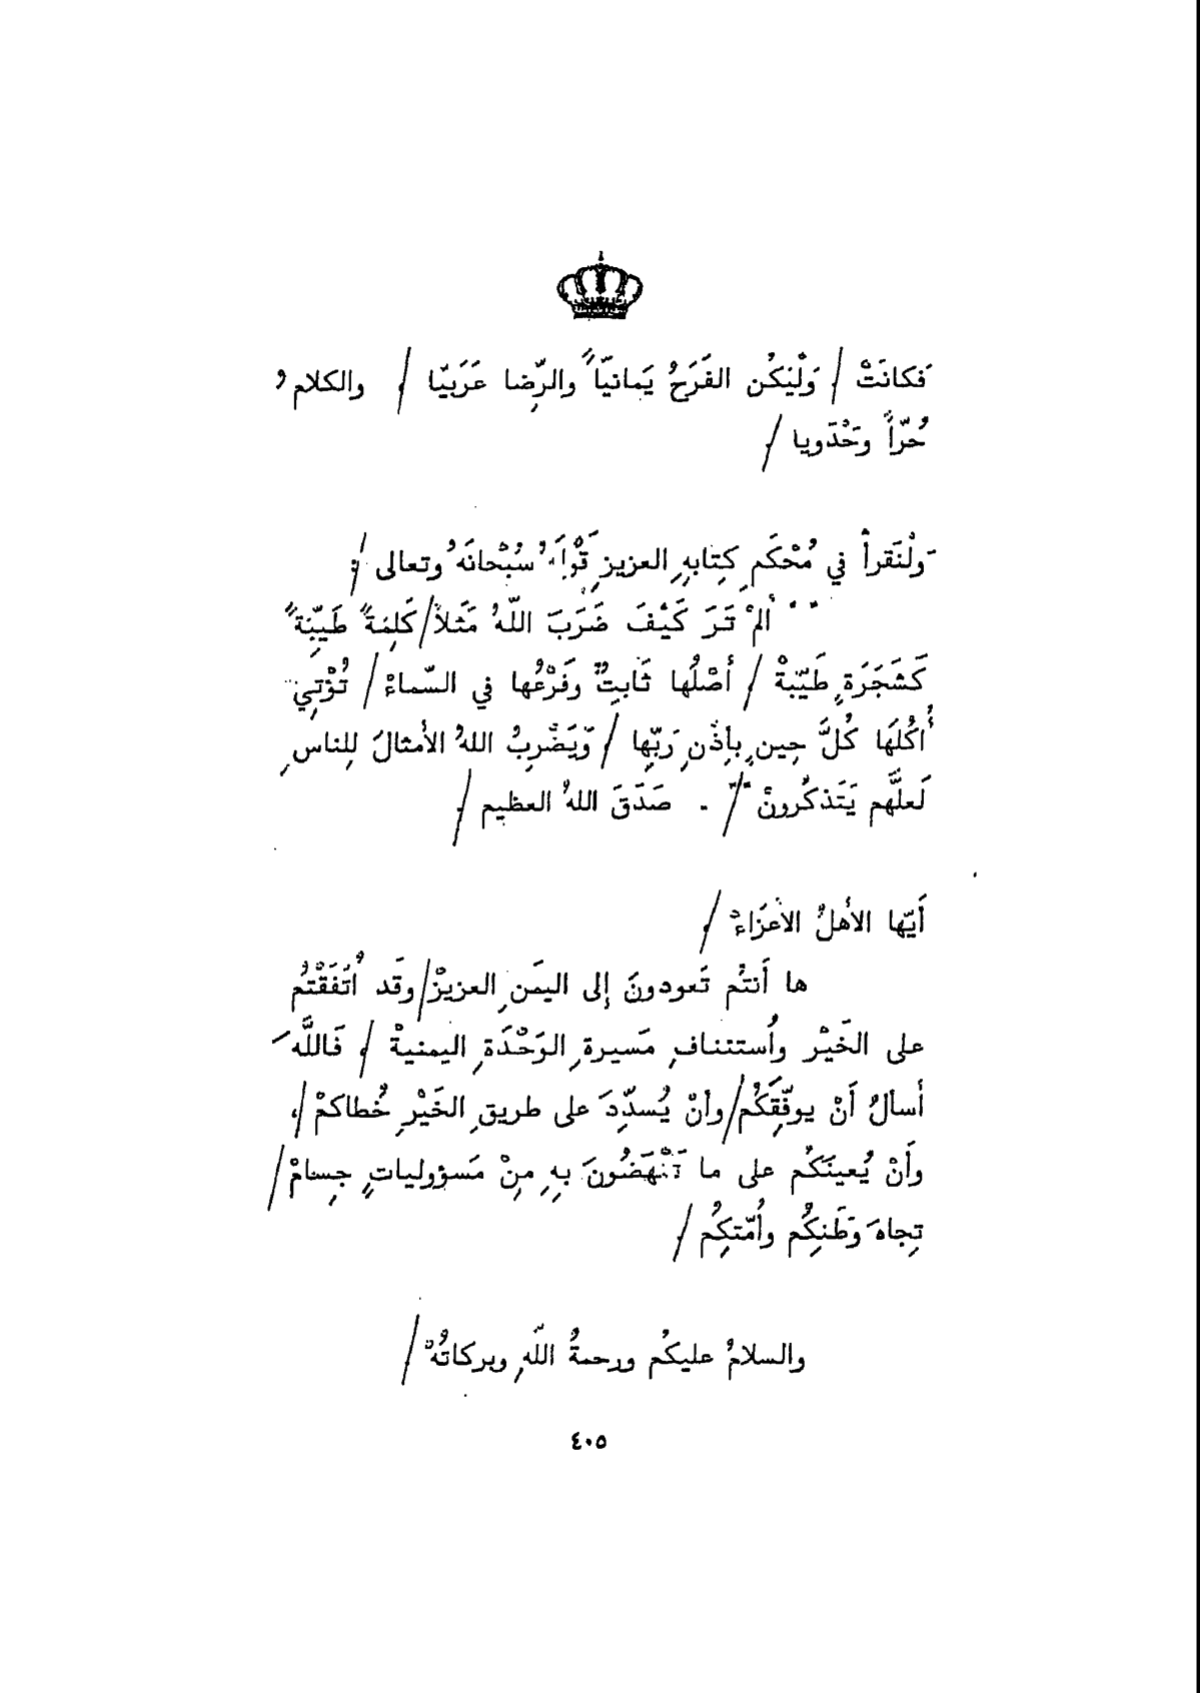 فَكانَتْ / وَلْيَكُن الفَرَحُ يَمانيّاً والرِّضا عَرَبيّا / والكلامُ
حُرّاً وحْدَويا /
ولْنَقرأْ في مُحْكَمِ كِتابِهِ العزيزِ قَوْلَهُ سُبْحانَهُ وتعالى /:
" ألمْ تَرَ كَيْفَ ضَرَبَ اللّهُ مَثَلاً / كَلِمَةً طَيِّبَةً
كَشَجَرَةٍ طَيّبةْ / أصْلُها ثَابِتٌ وفَرْعُها في السّماءْ / تُؤْتِي
أُكُلَهَا كُلَّ حِينٍ بِأذْنِ رَبِّها / وَيَضْرِبُ اللهُ الأمثالَ لِلناسِ
لَعلَّهم يَتَذكَّرونْ " / . صَدَقَ اللهُ العظيم /
أيّها الأهلُ الأعزَاءْ /
ها أنتُم تَعودونَ إلى اليمَنِ العزيزْ / وقَد اتَّفَقْتُم
على الخَيْرِ واُستئنافِ مَسيرةِ الوَحْدَةِ اليمنيةْ / فَاللَّهَ
أسألُ أنْ يوفّقَكُم / وأنْ يُسدّدَ على طريقِ الخَيْرِ خُطاكمْ /،
وأنْ يُعينَكُم على ما تَنْهَضُونَ بِهِ مِنْ مَسؤولياتٍ جِسامْ /
تِجاهَ وَطَنِكُم واُمّتِكُم /
والسلامُ عليكُم ورحمةُ اللّهِ وبركاتُهْ /
٤٠٥